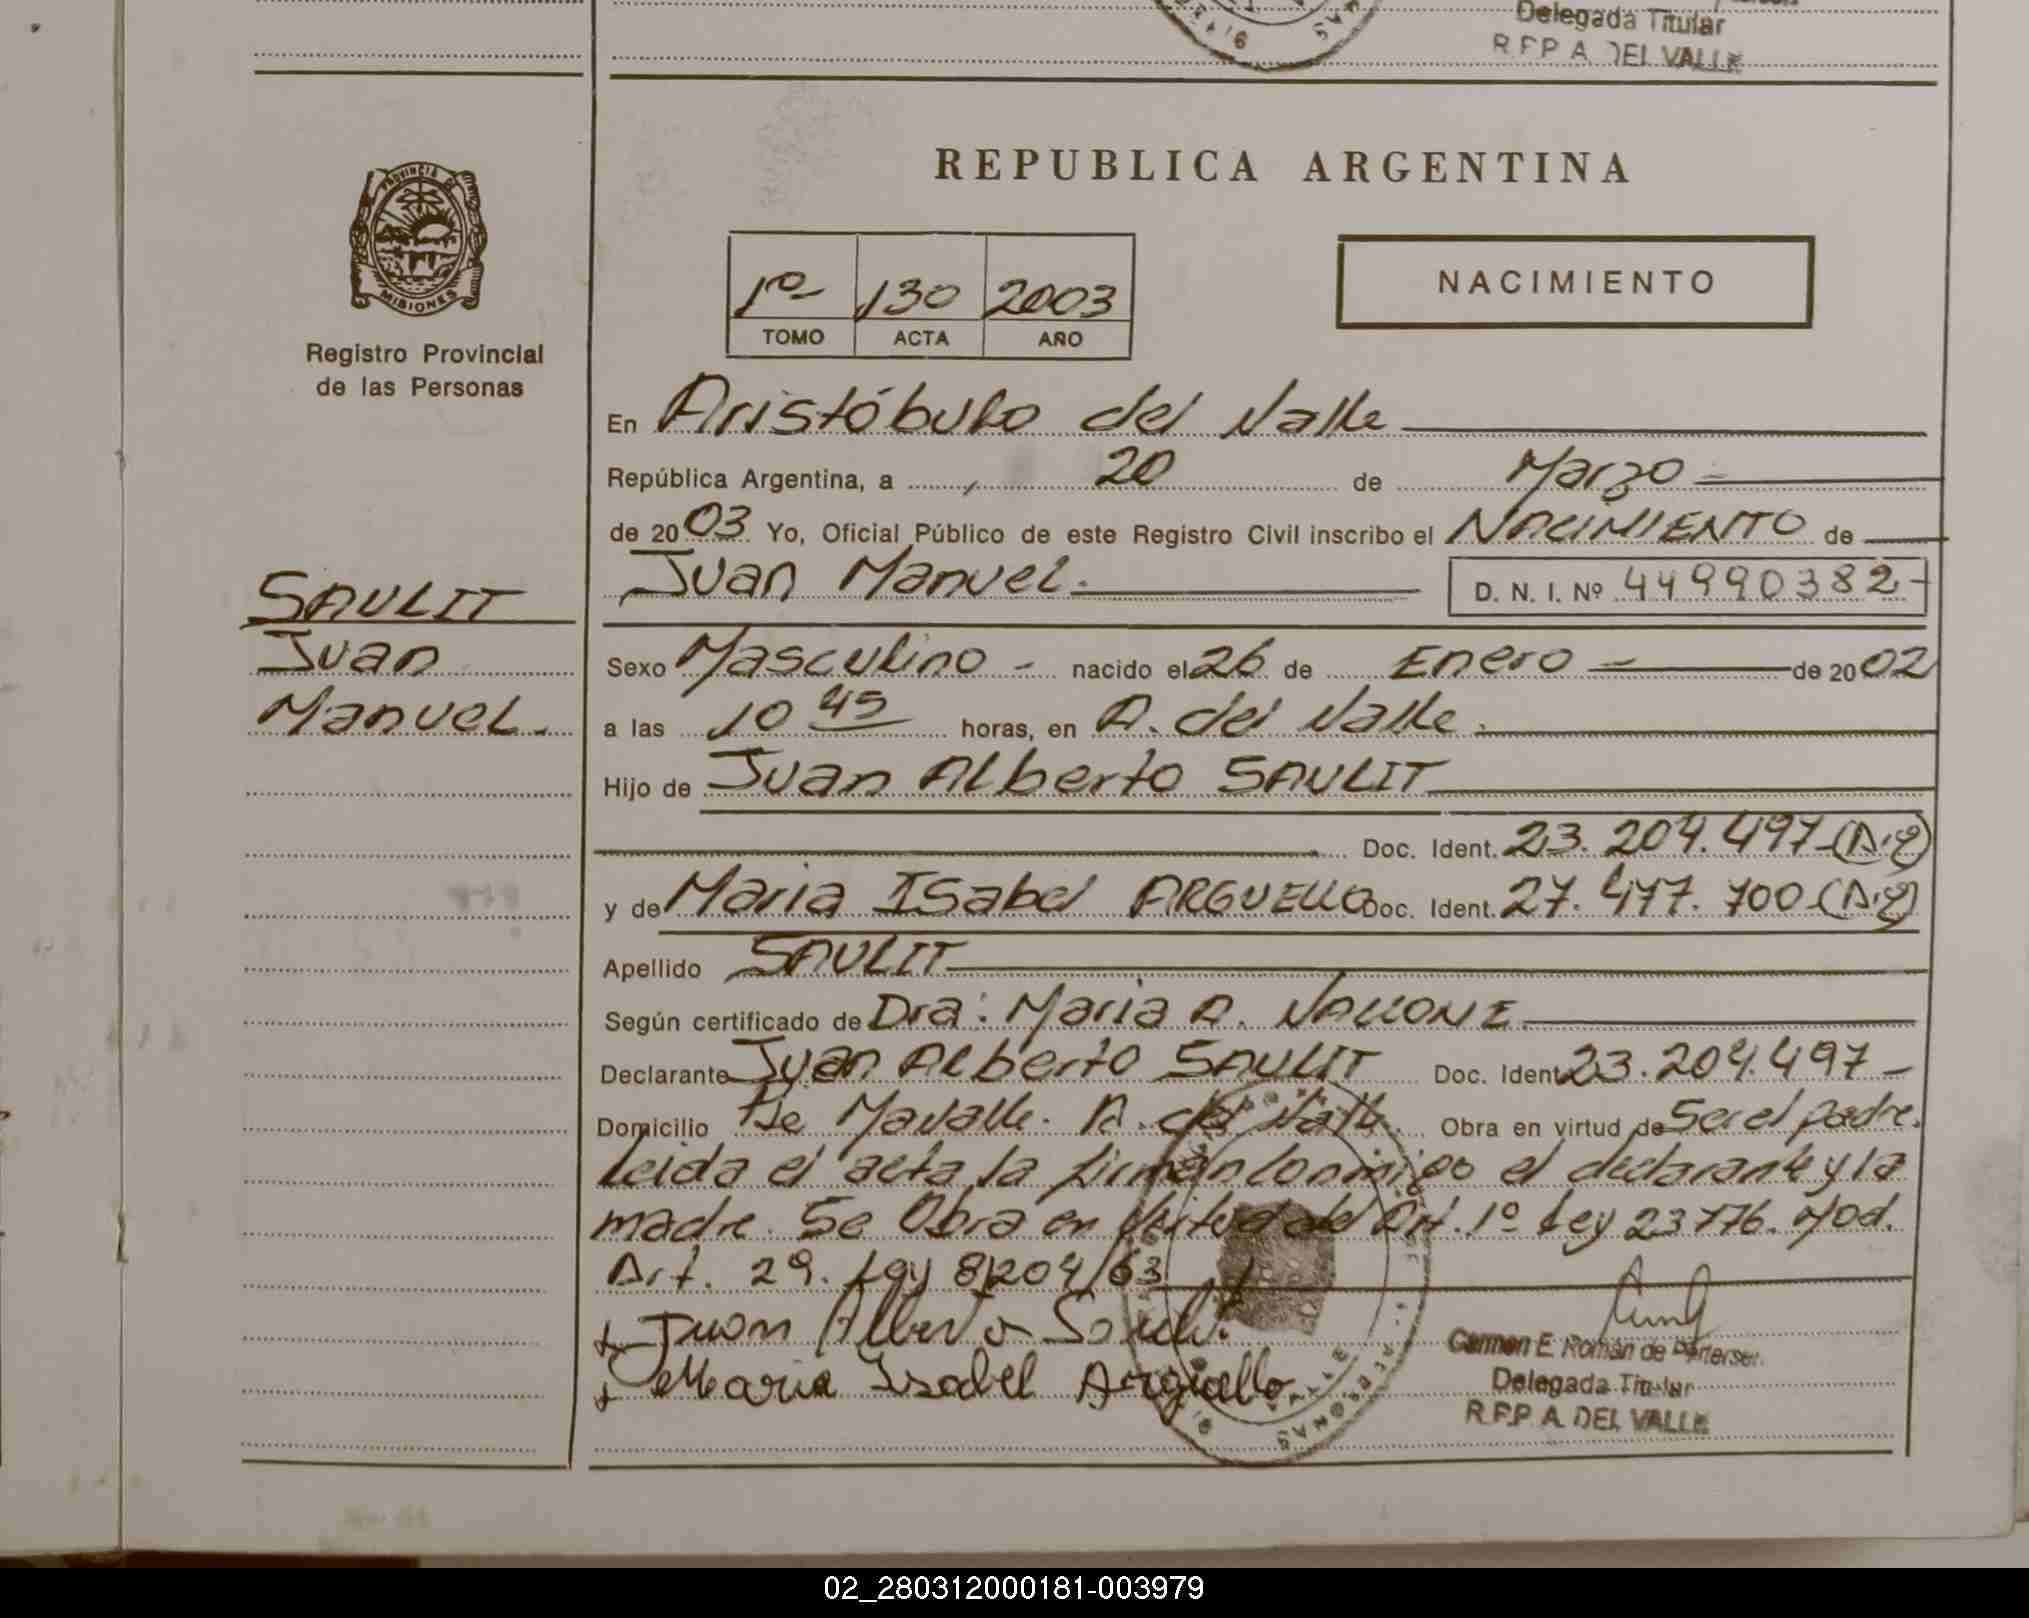 Delegada Titular
R.P.P. A. DEL VALLE
PROVINCIA DE
MISIONES
Registro Provincial
de las Personas
SAULIT
Juan
Manuel.
REPUBLICA ARGENTINA
1º 130 2003
TOMO ACTA AÑO
NACIMIENTO
En Aristóbulo del Valle
República Argentina, a 20 de Marzo
de 2003 Yo, Oficial Público de este Registro Civil inscribo el NACIMIENTO de
Juan Manuel. D. N. I. Nº 44990382-
Sexo Masculino - nacido el 26 de Enero - de 2002
a las 10 45 horas, en A. del Valle.
Hijo de Juan Alberto SAULIT
Doc. Ident. 23.204.497-(Arg)
y de Maria Isabel ARGUELLO Doc. Ident. 27.477.700-(Arg)
Apellido SAULIT
Según certificado de Dra: Maria A. VALLONE
Declarante Juan Alberto SAULIT Doc. Ident. 23.204.497-
Domicilio A. del Valle. Obra en virtud de Ser el padre.
Leida el acta la firman conmigo el declarante y la
madre. Se Obra en virtud del Art. 1º Ley 23776. Mod.
Art. 29. Ley 8204/63
Juan Alberto Saulit
Maria Isabel Arguello
Carmen E. Román de
Delegada Titular
R.P.P. A. DEL VALLE
02_280312000181-003979